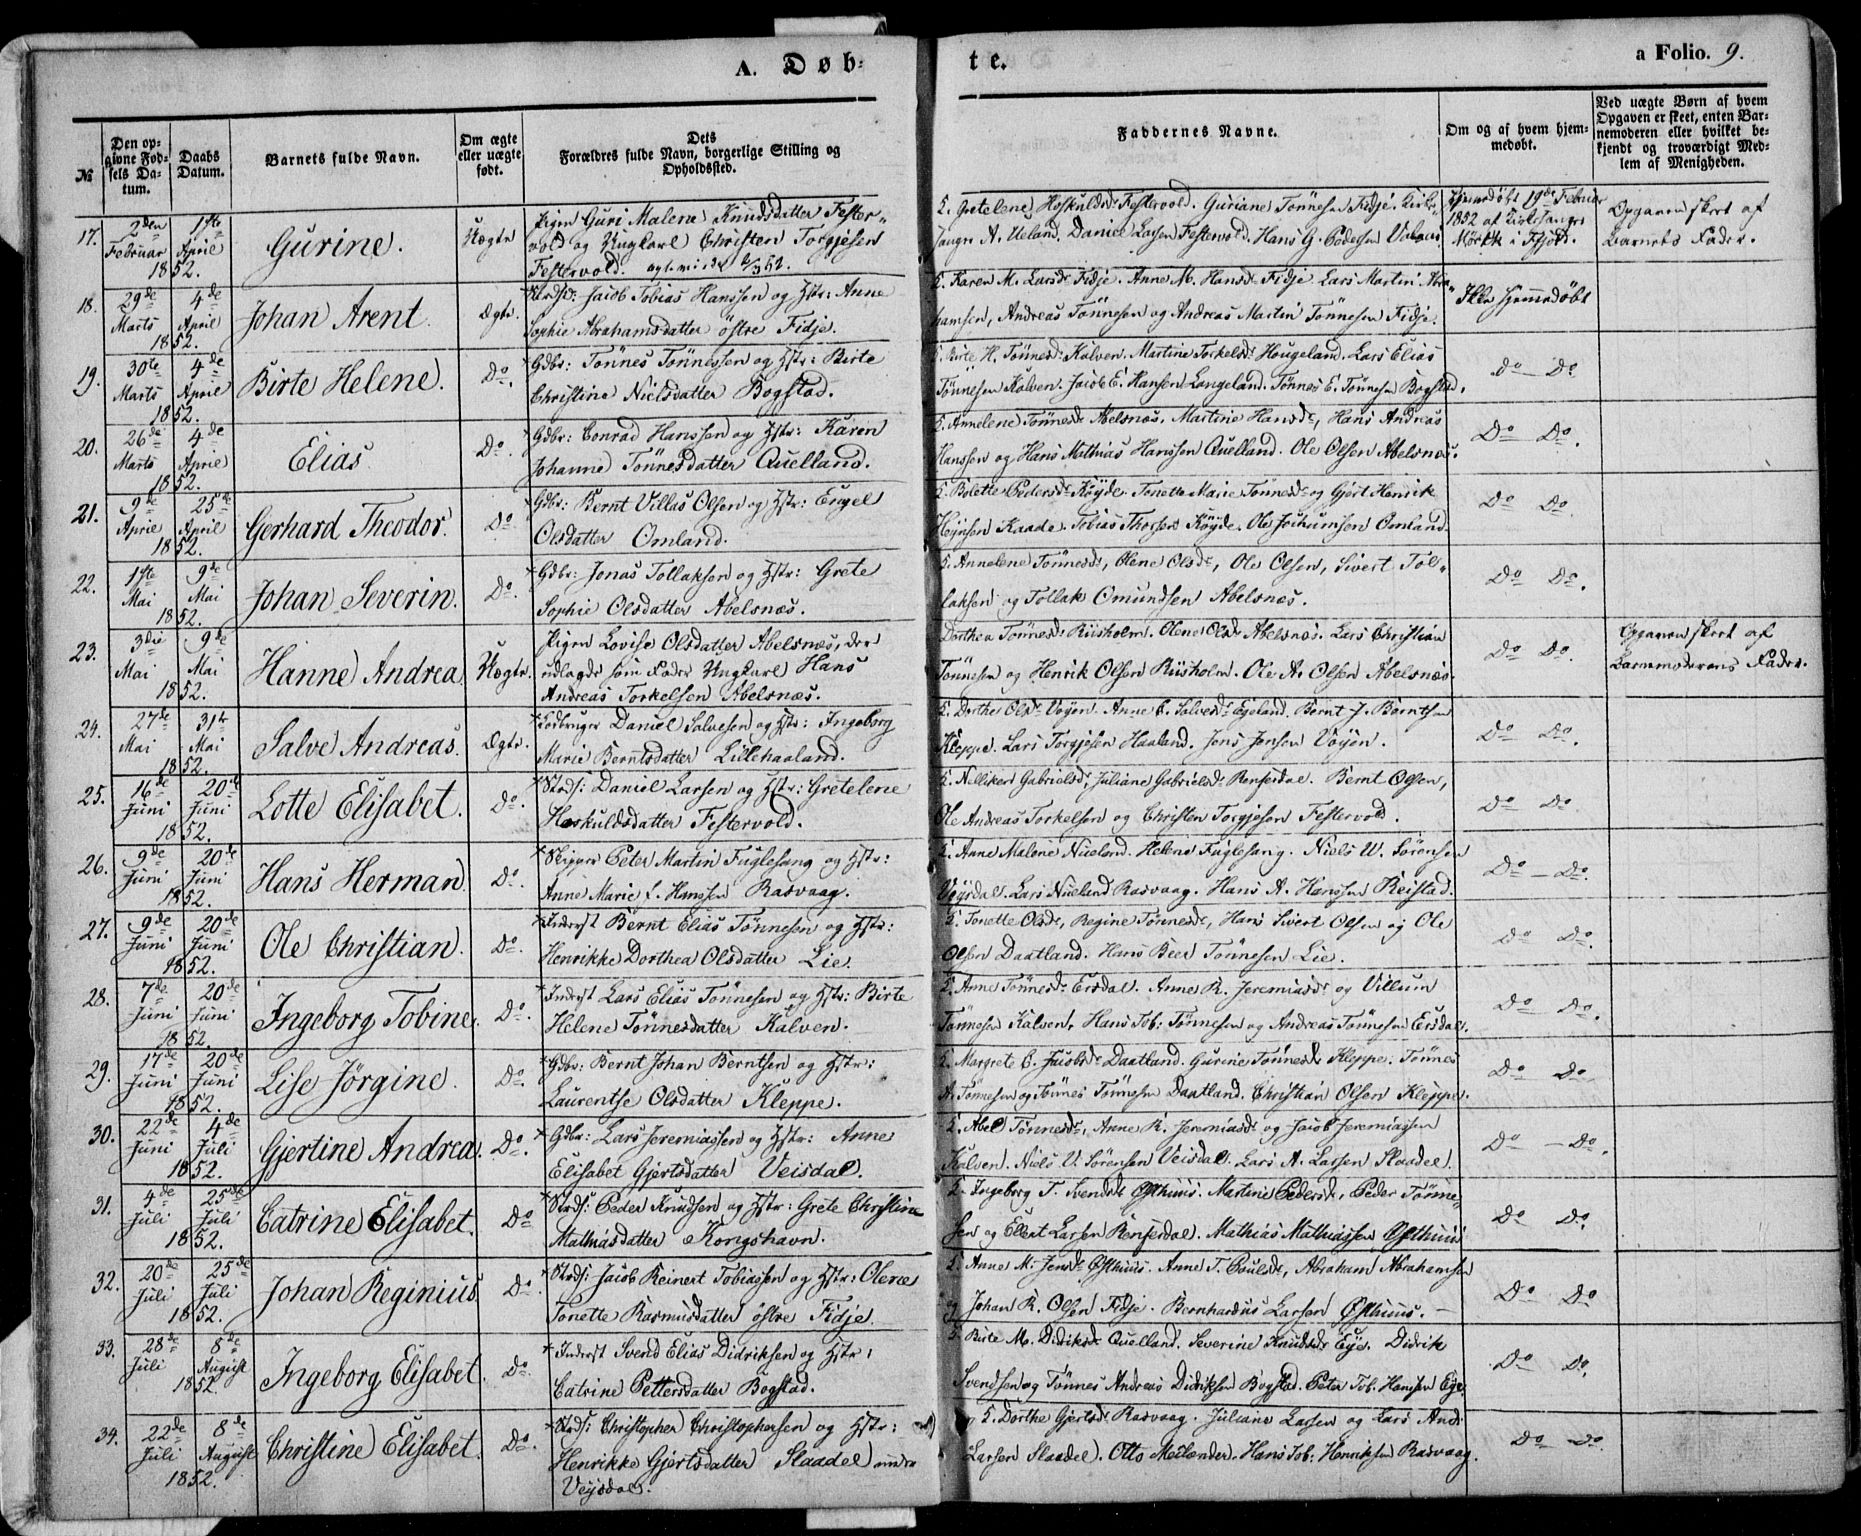 A. Døb-
te.
a Folio. 9.
№
Den op-
givne Fød-
sels Da-
tum.
Daabs
Datum.
Barnets fulde Navn.
Om ægte
eller uægte
født.
Dets
Forældres fulde Navn, borgerlige Stilling og
Opholdssted.
Faddernes Navne.
Om og af hvem hjem-
medøbt.
Ved uægte Børn af hvem
Opgaven er skeet, enten Bar-
nemoderen eller hvilket be-
kjendt og troværdigt Med-
lem af Menigheden.
17.
2den
Februar
1ste
April
1852.
Gurine.
Uægte
Pigen Guri Malene Knudsdatter Fester-
vold og Ungkarl Christen Torgjesen
Festervold.
F. Gretelene Høskulds Festervold. Guriane Tønnesen Fidje. Kirke-
sanger A. Ueland. Daniel Larsen Festervold. Hans G. Pedersen
Hjemdøbt 19de Februar
1852 af Kirkesanger
Opgaven skeet af
Barnets Fader.
18.
29de
Marts
4de
April
1852.
Johan Arent.
Ægte.
Strds: Jacob Tobias Hanssen og Hstr: Anne
Sophie Abrahamsdatter østre Fidje.
F. Karen M. Larsd. Fidje. Anne M. Hansd. Fidje. Lars Martin Abra-
hamsen, Andreas Tønnesen og Andreas Martin Tønnesen Fidje.
Ikke hjemmedøbt
19.
30te
Marts
4de
April
1852.
Birte Helene.
Do.
Gdbr: Tønnes Tønnessen og Hstr: Birte
Christine Nielsdatter Bogstad.
F. Birte H. Tønnesd. Kalven. Martine Torkelsd. Hougeland. Lars Elias
Tønnesen Kalven. Jacob E. Hansen Langeland. Tønnes E. Tønnesen Bogstad.
Do — Do.
20.
26de
Marts
4de
April
1852.
Elias
Do.
Gdbr: Conrad Hanssen og Hstr: Karen
Johanne Tønnesdatter Quelland.
F. Annelene Tønnesd. Abelsnæs. Martine Hansd., Hans Andreas
Hanssen og Hans Mathias Hanssen Quelland. Ole Olsen Abelsnæs.
Do — Do.
21.
9de
April
25de
April
1852.
Gerhard Theodor.
Do
Gdbr: Bernt Villas Olsen og Hstr: Engel
Olsdatter Omland.
F. Bolette Pedersd. Køyde. Tonette Marie Tønnesd. og Gjert Henrik
Kaade. Tobias Thorsen Køyde. Ole Jochumsen Omland.
Do Do.
22.
1ste
Mai
9de
Mai
1852.
Johan Severin.
Do.
Gdbr: Jonas Tollaksen og Hstr: Grete
Sophie Olsdatter Abelsnæs.
F. Annelene Tønnesd., Olene Olsd., Ole Olsen, Sivert Tol-
laksen og Tollak Omundsen Abelsnæs.
Do Do.
23.
3die
Mai
9de
Mai
1852.
Hanne Andrea
Uægte.
Pigen Lovise Olsdatter Abelsnæs, der
udlagde som Fader Ungkarl Hans
Andreas Torkelsen Abelsnæs.
Dorthea Tønnesd. Riisholm. Olene Olsd. Abelsnæs. Lars Christian
Tønnesen og Henrik Olsen Riisholm. Ole A. Olsen Abelsnæs.
Do Do.
Opgaven skeet af
Barnmoderens Fader.
24.
27de
Mai
31te
Mai
1852.
Salve Andreas.
Ægte.
Jordbruger Daniel Salvesen og Hstr: Ingeborg
Marie Berntsdatter Lillehaaland.
F. Dorthe Olsd. Vøyen. Anne E. Salvesd. Egeland. Bernt J. Berntsen
Kleppe. Lars Torgjesen Haaland. Jens Jensen Vøyen.
Do Do.
25.
16de
Juni
20de
Juni
1852.
Lotte Elisabet.
Do.
Strds: Daniel Larsen og Hstr: Gretelene
Høskuldsdatter Festervold.
F. Nelliken Gabrielsd., Juliane Gabrielsd. Renserdal. Bernt Olsen,
Ole Andreas Torkelsen og Christen Torgjesen Festervold.
Do Do.
26.
9de
Juni
20de
Juni
1852.
Hans Herman
Do.
Skipper Peter Martin Fuglesang og Hstr:
Anne Marie f. Hanssen Rasvaag.
F. Anne Malene Nueland. Helene Fuglesang. Niels W. Sørensen
Vøysdal. Lars Nueland Rasvaag. Hans A. Hanssen Reistad.
Do — Do.
27.
9de
Juni
20de
Juni
1852.
Ole Christian.
Do.
Inderst Bernt Elias Tønnesen og Hstr:
Henrikke Dorthea Olsdatter Lie.
F. Tonette Olsd., Regine Tønnesd., Hans Sivert Olsen og Ole
Olsen Daatland. Hans Beer Tønnesen Lie.
Do Do.
28.
7de
Juni
20de
Juni
1852.
Ingeborg Tobine.
Do.
Inderst Lars Elias Tønnesen og Hstr: Birte
Helene Tønnesdatter Kalven.
F. Anne Tønnesd. Ersdal. Anne R. Jeremiasd. og Villum
Tønnesen Kalven. Hans Tob: Tønnesen og Andreas Tønnesen Ersdal.
Do Do.
29.
17de
Juni
20de
Juni
1852.
Lise Jørgine.
Do.
Gdbr: Bernt Johan Berntsen og Hstr:
Laurentse Olsdatter Kleppe.
F. Margrete E. Jacobsd. Daatland. Gurine Tønnesd. Kleppe. Tønnes
A. Tønnesen og Tønnes Tønnesen Daatland. Christian Olsen Kleppe.
Do Do.
30.
22de
Juni
4de
Juli
1852.
Gjertine Andrea.
Do.
Gdbr: Lars Jeremiassen og Hstr: Anne
Elisabet Gjertsdatter Veisdal.
F. Abel Tønnesd., Anne R. Jeremiasd. og Jacob Jeremiassen
Kalven. Niels V. Sørensen Veisdal. Lars A. Larsen Slaadel.
Do — Do.
31.
4de
Juli
25de
Juli
1852.
Catrine Elisabet.
Do
Strds: Peder Knudsen og Hstr: Grete Christine
Mathiasdatter Kongshavn.
F. Ingeborg T. Svendsd. Østhuus. Martine Pedersd., Peder Tønne-
sen og Ellert Larsen Renserdal. Mathias Mathiassen Østhuus
Do Do.
32.
20de
Juli
25de
Juli
1852.
Johan Reginius
Do.
Strds: Jacob Reinert Tobiassen og Hstr: Olene
Tonette Rasmusdatter østre Fidje.
F. Anne M. Jensd. Østhuus. Anne T. Poulsd., Abraham Abrahamsen
og Johan R. Olsen Fidje. Bernhardus Larsen Østhuus.
Do Do
33.
28de
Juli
8de
August
1852.
Ingeborg Elisabet.
Do.
Inderst Svend Elias Didriksen og Hstr:
Catrine Pettersdatter Bogstad.
F. Birte M. Didriksd. Quelland. Severine Knudsd. Eye. Didrik
Svendsen og Tønnes Andreas Didriksen Bogstad. Peter Tob. Hansen Eye.
Do Do.
34.
22de
Juli
8de
August
1852.
Christine Elisabet.
Do.
Strds: Christopher Christophersen og Hstr:
Henrikke Gjertsdatter Slaadel under
Veisdal.
F. Dorthe Gjertsd. Rasvaag. Juliane Larsen og Lars And.
Larsen Slaadel. Otto Meilænder. Hans Tob: Henriksen Rasvaag.
Do Do.